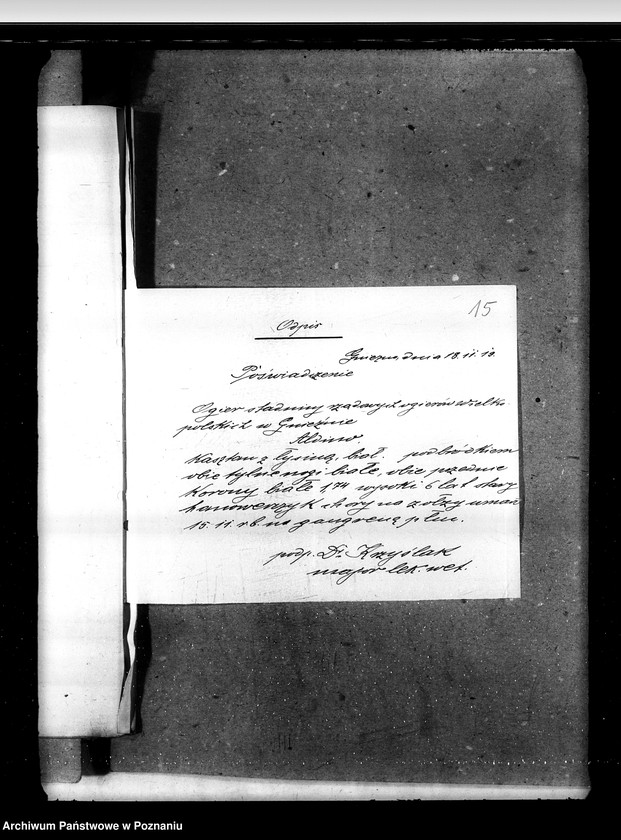 15
Odpis
Gniezno, dnia 18.11.19.
Poświadczenie
Ogier stadniny rządowych ogierów wielko-
polskich w Gnieźnie
Aldino.
Kasztan z łysiną, biał. podbródkiem
obie tylne nogi białe, obie przednie
korony białe 1,74 wysoki 6 lat stary
hanowerczyk chory na zołzy umarł
15.11.rb. na gangrenę płuc.
podp. Dr. Krzyślak
major lek. wet.
Archiwum Państwowe w Poznaniu